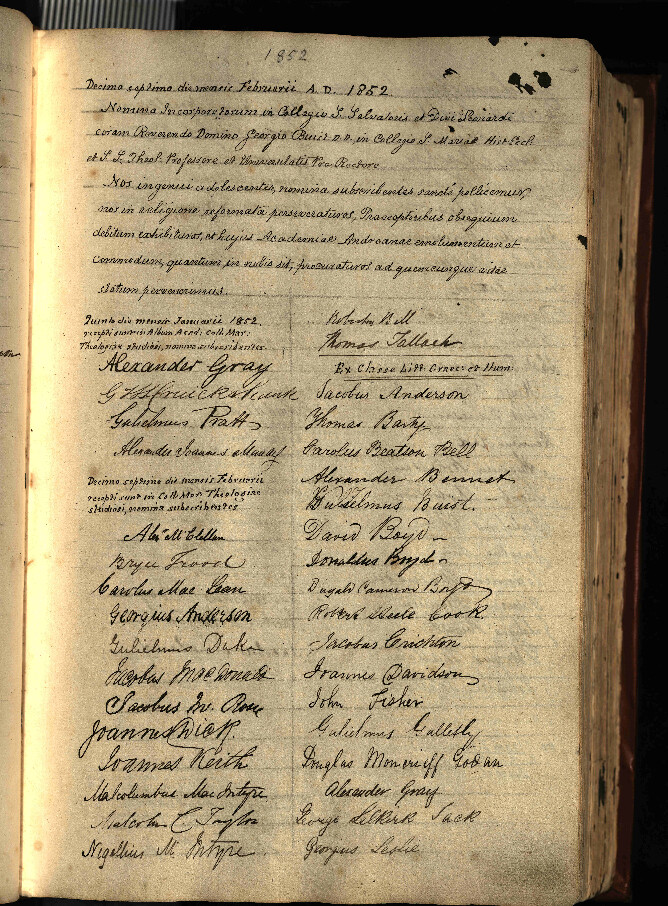 1852
Decimo septimo die mensis Februarii A.D. 1852.
Nomina Incorporatorum in Collegio S. Salvatoris et Divi Leonardi
coram Reverendo Domino Georgio Buist D.D. in Collegio S. Mariae Hist. Eccl.
et S. L. Theol. Professore et Universitatis Pro Rectore
Nos ingenui adolescentes, nomina subscribentes sancte pollicemur,
nos in religione reformata perseveraturos, Praeceptoribus obsequium
debitum exhibituros, et hujus Academiae Andreanae emolumentum et
commodum, quantum in nobis sit, procuraturos ad quemcunque vitae
statum pervenerimus.
Quinto die mensis Januarii 1852.
recepti sunt in Album Acad: Coll: Mar:
Theologiae studiosi, nomina subscribentes
Alexander Gray
Gulielmus Pratt
Alexander Joannes
Decimo septimo die mensis Februarii
recepti sunt in Coll: Mar: Theologiae
studiosi, nomina subscribentes
Alexr McClellan
Bryce Frood
Carolus Mac Lean
Georgius Anderson
Gulielmus
Jacobus MacDonald
Jacobus M. Rose
Joannes Dick.
Joannes Keith
Malcolumbus MacIntyre
Malcolm C Taylor
Nigellius McIntyre
Robertus Bell
Thomas Tulloch
Ex Classe Litt: Graec: et Hum:
Jacobus Anderson
Thomas Barty
Carolus Beatson Bell
Alexander Bennet
Gulielmus Buist.
David Boyd
Donaldus Boyd
Dugald Cameron Boyd
Robert Steele Cook.
Jacobus Crichton
Joannes Davidson
John Fisher
Gulielmus Galletly
Douglas Moncrieff
Alexander Gray
George Selkirk Jack
Georgius Leslie